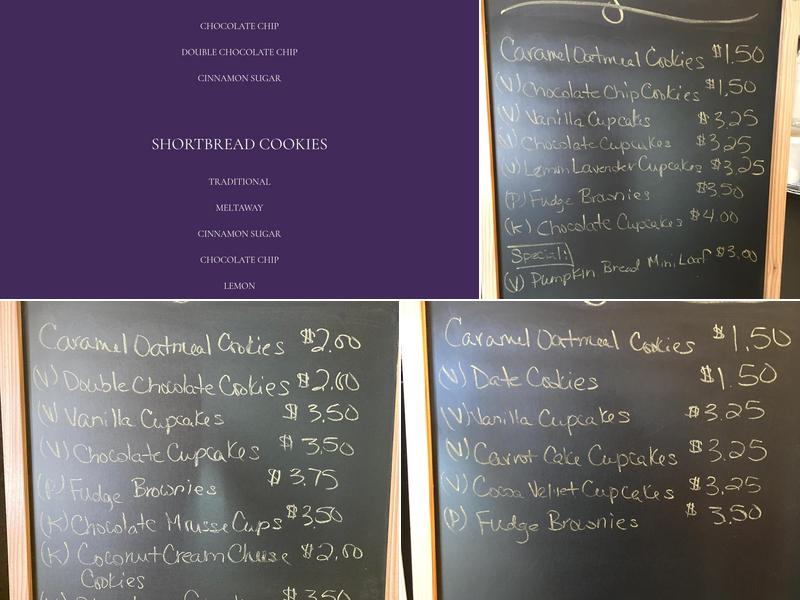 CHOCOLATE CHIP
DOUBLE CHOCOLATE CHIP
CINNAMON SUGAR
SHORTBREAD COOKIES
TRADITIONAL
MELTAWAY
CINNAMON SUGAR
CHOCOLATE CHIP
LEMON
Caramel Oatmeal Cookies $1.50
(V) Chocolate Chip Cookies $1.50
(V) Vanilla Cupcakes $3.25
(V) Chocolate Cupcakes $3.25
(V) Lemon Lavender Cupcakes $3.25
(P) Fudge Brownies $3.50
(K) Chocolate Cupcakes $4.00
Special:
(V) Pumpkin Bread Mini Loaf $3.00
Caramel Oatmeal Cookies $2.00
(V) Double Chocolate Cookies $2.00
(V) Vanilla Cupcakes $3.50
(V) Chocolate Cupcakes $3.50
(P) Fudge Brownies $3.75
(K) Chocolate Mousse Cups $3.50
(K) Coconut Cream Cheese $2.00
Cookies
$3.50
Caramel Oatmeal Cookies $1.50
(V) Date Cookies $1.50
(V) Vanilla Cupcakes $3.25
(V) Carrot Cake Cupcakes $3.25
(V) Cocoa Velvet Cupcakes $3.25
(P) Fudge Brownies $3.50